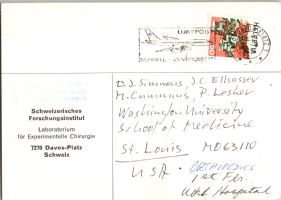 LUFTPOST
Schweizerisches
Forschungsinstitut
Laboratorium
für Experimentelle Chirurgie
7270 Davos-Platz
Schweiz
D.J. Simmons, J.C. Ellsasser
M. Cummins, P. Lesker
Washington University
School of Medicine
St. Louis MO63110
USA.
ORTHOPEDICS
1st Flr.
Hospital